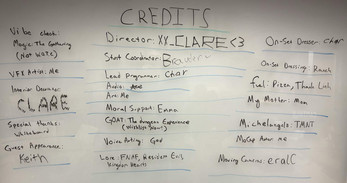 CREDITS
Vibe check:
Magic: The Gathering
(Not WotC)
VFX Artist: Me
Interior Decorator:
CLARE
Special thanks:
Whiteboard
Guest Appearance:
Keith
Director: XX_CLARE<3
Stunt Coordinator:
Lead Programmer: Char
Audio:
Art: Me
Moral Support: Emma
GOAT: The dungeon Experience
Voice Acting: God
Lore: FNAF, Resident Evil,
Kingdom Hearts
On-Set Dresser: Char
On-Set Dressing:
Fuel: Pizza,
My Mother: Mom
Michelangelo: TMNT
MoCap Actor: me
Moving Cameras: eralC